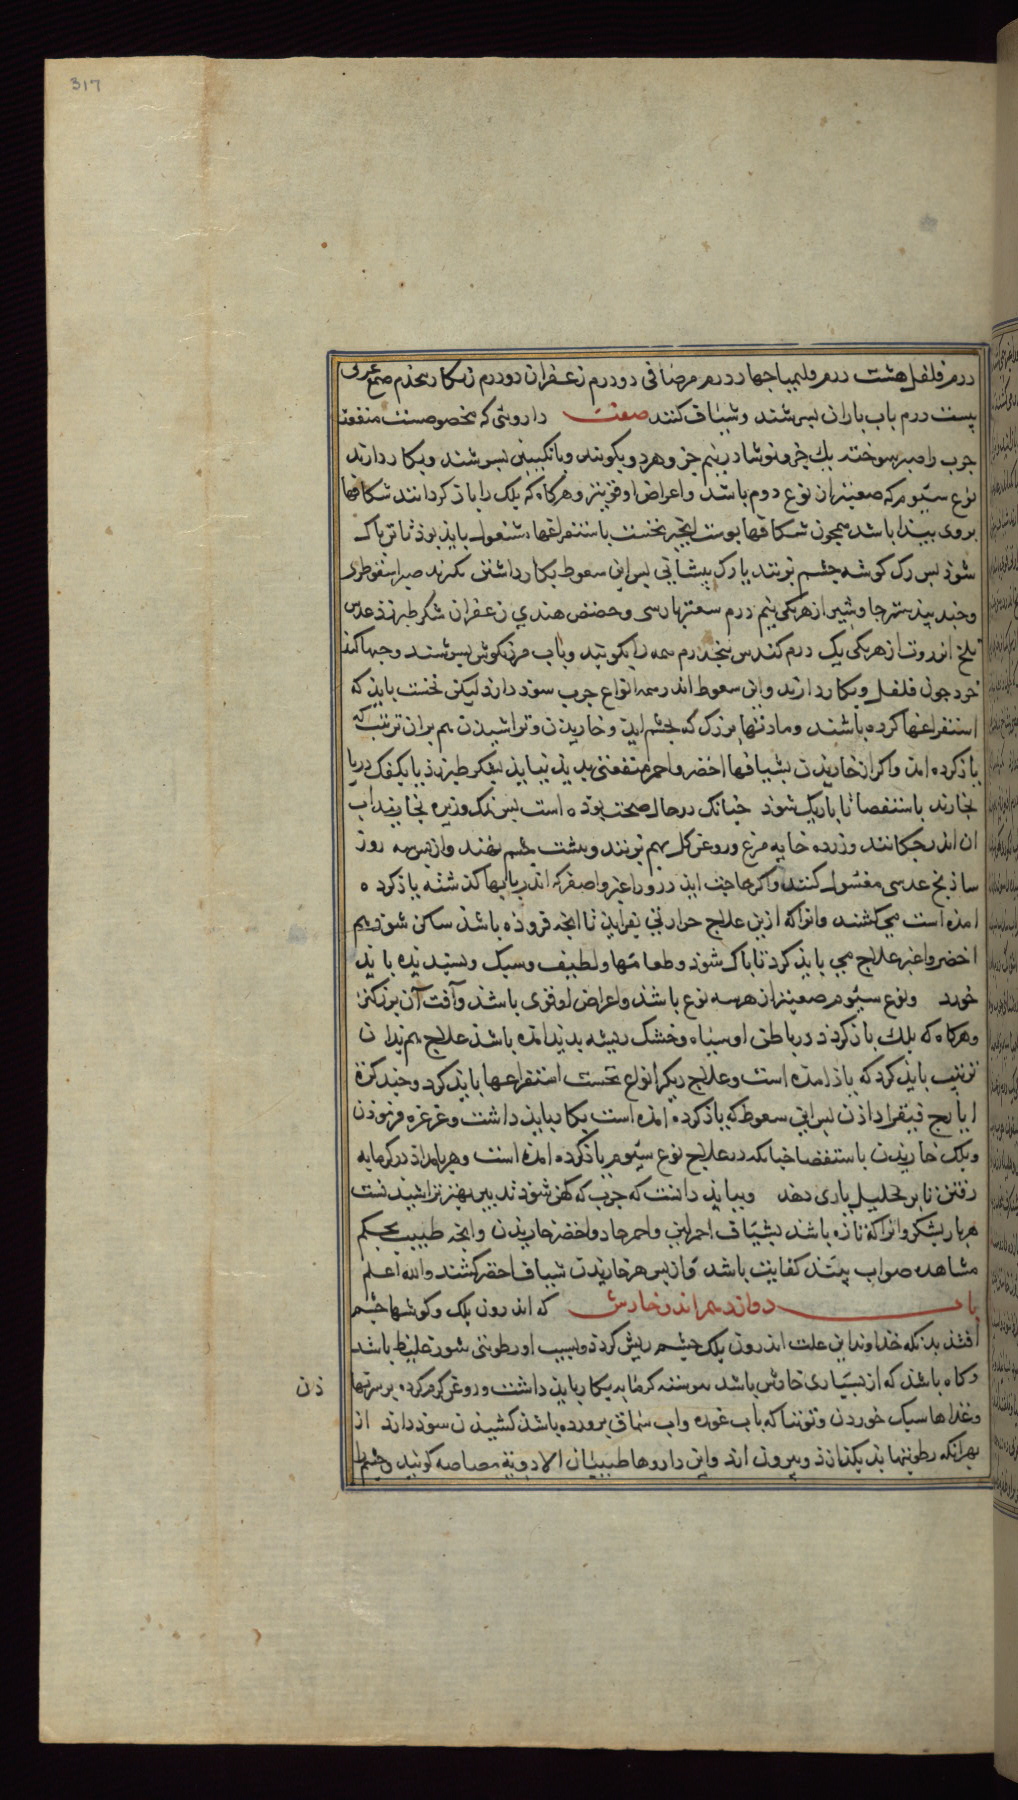 317
درم فلفل هشت درم قلیمیا چهار درم مرصافی دو درم زعفران دو درم زنکار پنجدرم صمغ عربی
بیست درم باب باران بسرشند و شیاف کنند صفت داروئی که مخصوصست منفعت
جرب را مس سوخته یک جزو نوشادر نیم جزو هردو بکوبند و بانکبین بسرشند و بکار دارند
نوع سیّوم که صعبتر از نوع دوم باشد و اعراض او قویتر و هرکاه که پلک را باز کردانند شکافها
بروی پیدا باشد همچون شکافها پوست انجیر نخست باستفراغها مشغول باید بوذ تا تن پاک
شوذ پس رک کوشه چشم بزنند یا رک پیشانی پس این سعوط بکار داشتن بکیرند صبر اسقوطری
و جند بیذستر جاوشیر از هریکی نیم درم سعتر پارسی و حضض هندی زعفران شکر طبرزد عدس
تلخ انزروت از هریکی یک درم کندس پنجدرم همه را بکوبند و باب مرزنکوش بسرشند و حبها کنند
خرد چون فلفل و بکار دارند و این سعوط اندر همه انواع جرب سوذ دارذ لیکن نخست باید که
استفراغها کرده باشند و مادتهاء بزرک که بچشم اید و خاریدن و تراشیدن هم بران ترتیب که
یاذ کرده امد و اکر از خاریدن بشیافها اخضر و احمر منفعتی پدید نیاید بشکر طبرزذ یا بکفک دریا
بخارند باستقصا تا باریک شوذ چنانک در حال صحت بوده است پس نمک و زیره بخایند اب
ان اندر چکانند و زرده خایه مرغ و روغن کل بهم بزنند و بپشت چشم نهند و از پس سه روز
ساذنج عدسی مغسول کنند و اکر حاجت اید ذرور اغبر و اصفر که اندر بابها کذشته یاذ کرده
امده است می کشند و انرا که ازین علاج حرارتی بفزاید تا انچه فزوذه باشد ساکن شوذ هم
اخضر و اغبر علاج می باید کرد تا پاک شوذ و طعامها و لطیف و سبک و پسندیده باید
خورد و نوع سیّوم صعبتر از هرسه نوع باشد و اعراض او قوی باشد و آفت آن بزرکتر
و هرکاه که پلک باز کردد در باطن او سیاه و خشک ریشه پدید امده باشد علاج هم بدان
ترتیب باید کرد که یاذ امده است و علاج دیکر انواع نخست استفراغها باید کرد و چند کرة
ایارج فیقرا داذن پس این سعوط که یاذ کرده امده است بکار باید داشت و غرغره فرموذن
و پلک خاریدن باستقصا چنانکه در علاج نوع سیّوم یاذ کرده امده است و هر بامداذ در کرمابه
رفتن تا بر تحلیل یاری دهد و بباید دانست که جرب که کهن شوذ تدبیر بهتر تراشیدنست
هر بار بشکر و انرا که تازه باشد بشیاف احمر لین و احمر حاد و اخضر خاریدن و انچه طبیب بحکم
مشاهده صواب بیند کفایت باشد و از پس هر خاریدن شیاف اخضر کشند والله اعلم
باب دوازدهم اندر خارش که اندرون پلک و کوشها چشم
افتذ بدانکه خداوند این علت اندرون پلک چشم ریش کردد و بسبب او رطوبتی شور غلیظ باشد
و کاه باشذ که از بسیاری خارش باشد پیوسته کرمابه بکار باید داشت و روغن کرم کرده بر سر نها
دن
و غذاها سبک خوردن و توتیا که باب غوره و اب سماق پرورده باشد کشیدن سوذ دارذ از
بهر انکه رطوبتها بذ بکذازذ و بیرون ارد و این داروها طبیبان الادویة مصاصه کویند و چشم را